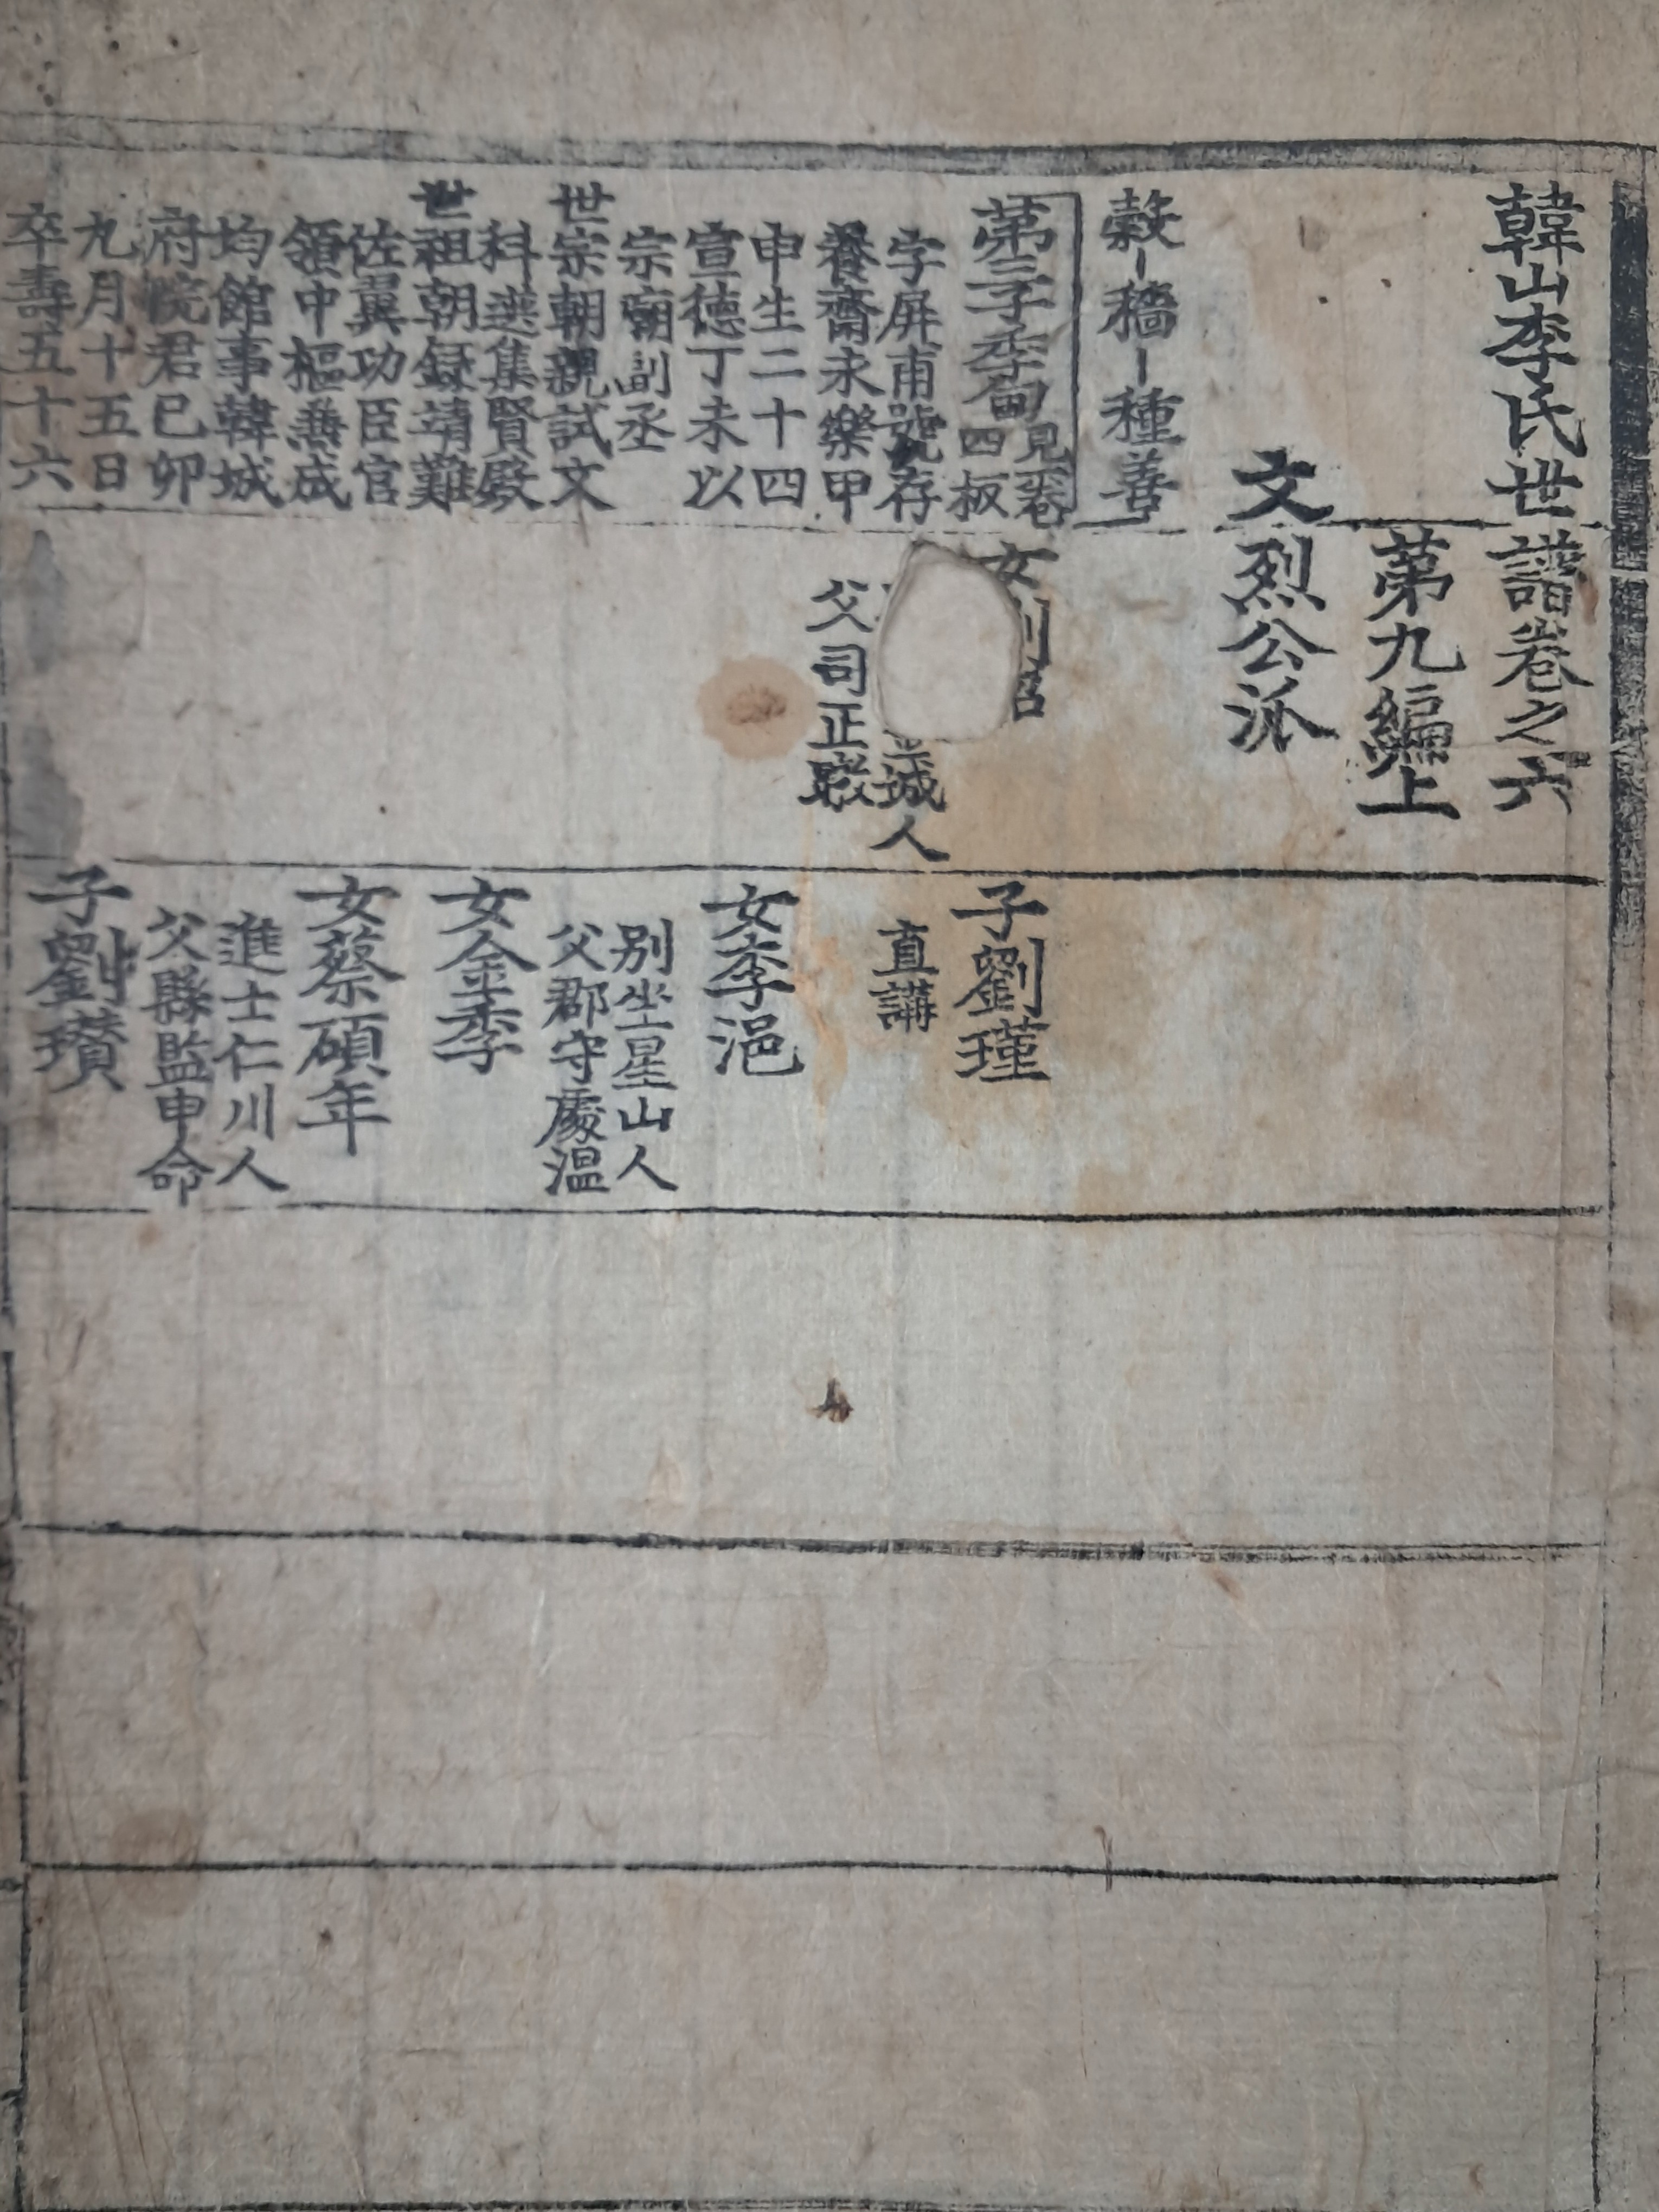 韓山李氏世譜卷之六
第九編上
文烈公派
穀-穡-種善
第三子季甸
見一卷
四板
字屏甫號存
養齋永樂甲
申生二十四
宣德丁未以
宗廟副丞
世宗朝親試文
科選集賢殿
世祖朝録靖難
佐翼功臣官
領中樞兼成
均館事韓城
府院君己卯
九月十五日
卒壽五十六
女
城人
父司正
子劉瑾
直講
女李浥
别坐星山人
父郡守處温
女金季
女蔡碩年
進士仁川人
父縣監申命
子劉瓚